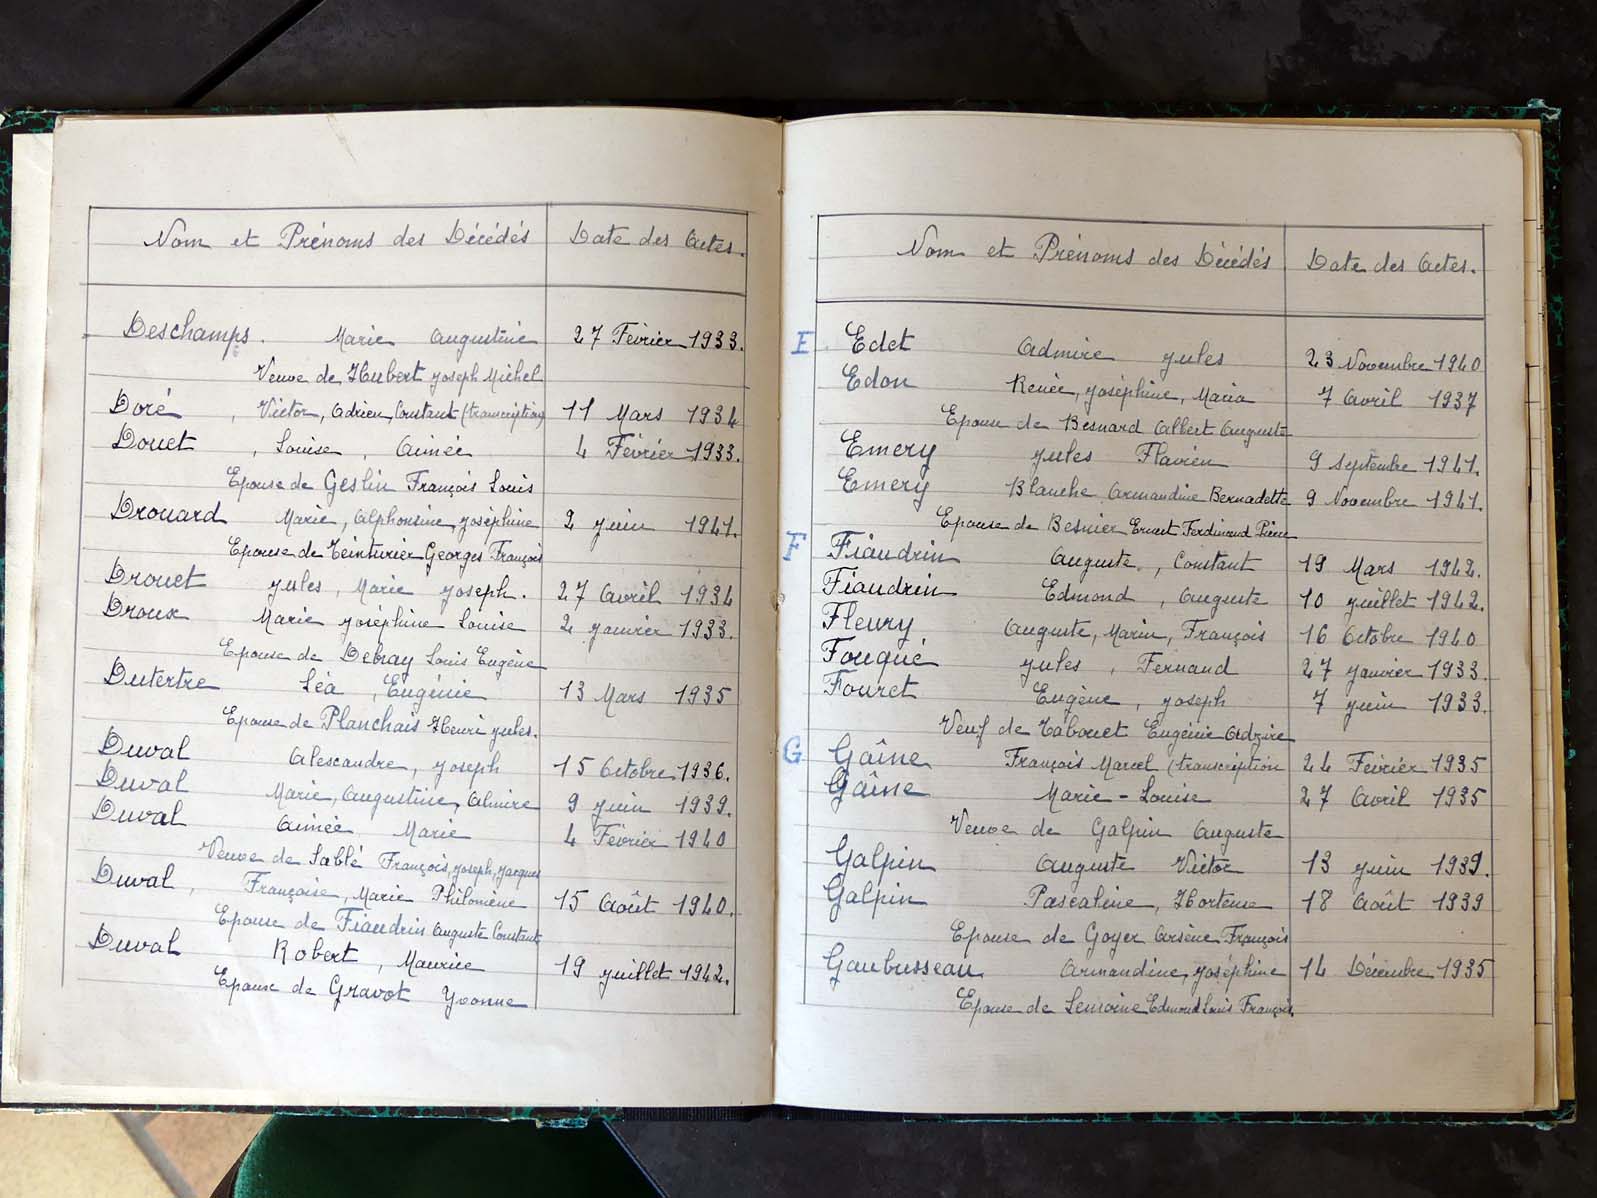 Nom et Prénoms des Décédés Date des Actes.
Deschamps. Marie Augustine 27 Février 1933.
Veuve de Hubert Joseph Michel
Doré, Victor, Adrien, Constant (transcription) 11 Mars 1934
Douet, Louise, Aimée 4 Février 1933.
Epouse de Geslin François Louis
Drouard Marie, Alphonsine, Joséphine 2 Juin 1941.
Epouse de Teinturier Georges François
Drouet Jules, Marie Joseph. 27 Avril 1934
Droux Marie Joséphine Louise 2 Janvier 1933.
Epouse de Debray Louis Eugène
Dutertre Léa, Eugénie 13 Mars 1935
Epouse de Planchais Henri Jules.
Duval Alexandre, Joseph 15 Octobre 1936.
Duval Marie, Augustine, Almire 9 Juin 1939.
Duval Aimée Marie 4 Février 1940
Veuve de Sablé François, Joseph, Jacques
Duval, Françoise, Marie Philomène 15 Août 1940.
Epouse de Fiaudrin Auguste Constant
Duval Robert, Maurice 19 Juillet 1942.
Epouse de Gravot Yvonne
Nom et Prénoms des Décédés Date des Actes.
E Edet Admire Jules 23 Novembre 1940
Edon Renée, Joséphine, Maria 7 Avril 1937
Epouse de Besnard Albert Auguste
Emery Jules Flavien 9 Septembre 1941.
Emery Blanche Armandine Bernadette 9 Novembre 1941.
Epouse de Besnier Ernest Ferdinand Pierre
F Fiaudrin Auguste, Constant 19 Mars 1942.
Fiaudrin Edmond, Auguste 10 Juillet 1942.
Fleury Auguste, Marin, François 16 Octobre 1940
Fouqué Jules, Fernand 27 Janvier 1933.
Fouret Eugène, Joseph 7 Juin 1933.
Veuf de Tabouet Eugénie
G Gaîne François Marcel (transcription 24 Février 1935
Gaîne Marie-Louise 27 Avril 1935
Veuve de Galpin Auguste
Galpin Auguste Victor 13 Juin 1939.
Galpin Pascaline, Hortense 18 Août 1939
Epouse de Goyer Arsène François
Gaubusseau Armandine, Joséphine 14 Décembre 1935
Epouse de Lemoine Edmond Louis François